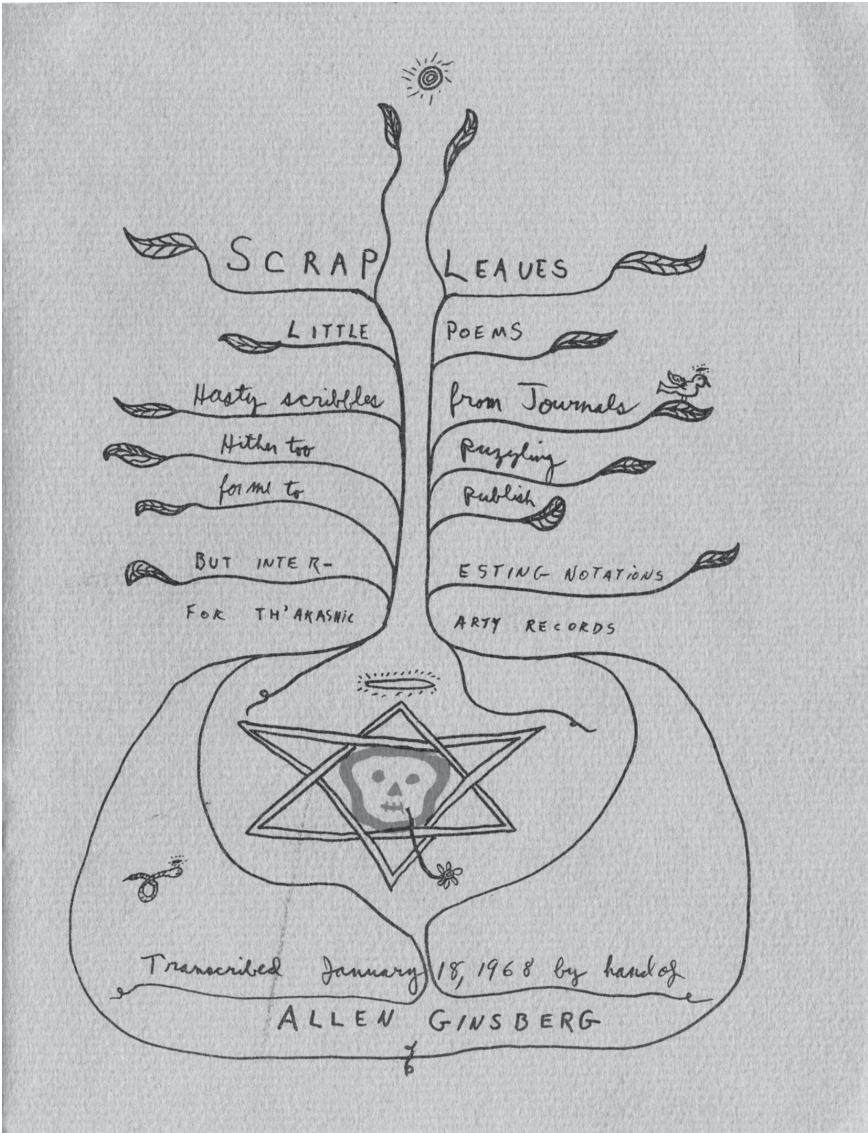 SCRAP LEAVES
LITTLE POEMS
Hasty scribbles from Journals
Hither too puzzling
for me to publish
BUT INTER- ESTING NOTATIONS
FOR TH'AKASHIC ARTY RECORDS
Transcribed January 18, 1968 by hand of
ALLEN GINSBERG